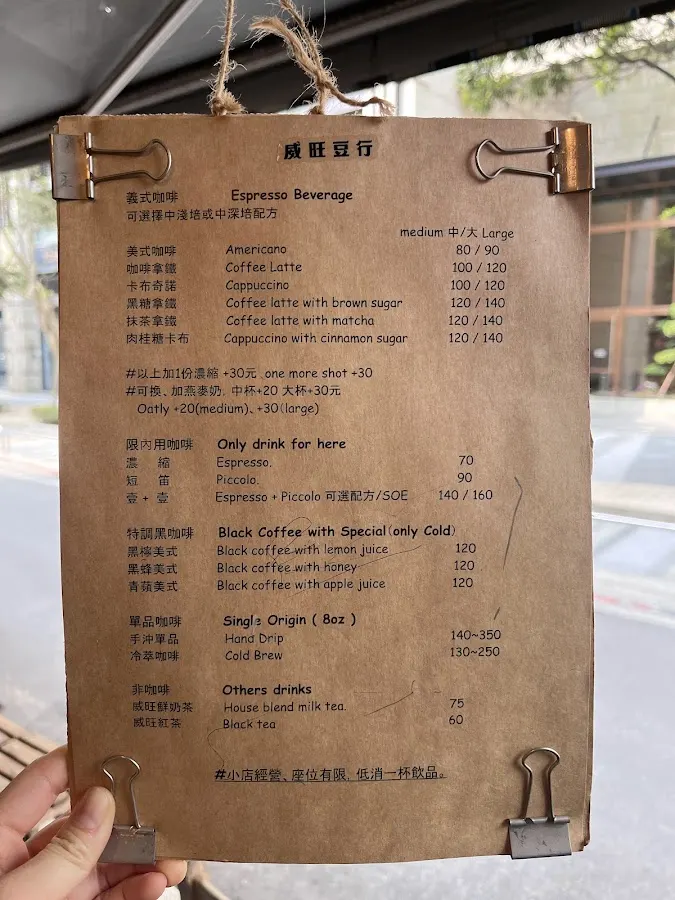 威旺豆行
義式咖啡 Espresso Beverage
可選擇中淺培或中深培配方
medium 中/大 Large
美式咖啡 Americano 80 / 90
咖啡拿鐵 Coffee Latte 100 / 120
卡布奇諾 Cappuccino 100 / 120
黑糖拿鐵 Coffee latte with brown sugar 120 / 140
抹茶拿鐵 Coffee latte with matcha 120 / 140
肉桂糖卡布 Cappuccino with cinnamon sugar 120 / 140
#以上加1份濃縮 +30元 one more shot +30
#可換、加燕麥奶, 中杯+20 大杯+30元
Oatly +20(medium)、+30(large)
限內用咖啡 Only drink for here
濃 縮 Espresso. 70
短 笛 Piccolo. 90
壹 + 壹 Espresso + Piccolo 可選配方/SOE 140 / 160
特調黑咖啡 Black Coffee with Special(only Cold)
黑檸美式 Black coffee with lemon juice 120
黑蜂美式 Black coffee with honey 120
青蘋美式 Black coffee with apple juice 120
單品咖啡 Single Origin ( 8oz )
手沖單品 Hand Drip 140~350
冷萃咖啡 Cold Brew 130~250
非咖啡 Others drinks
威旺鮮奶茶 House blend milk tea. 75
威旺紅茶 Black tea 60
#小店經營、座位有限, 低消一杯飲品。